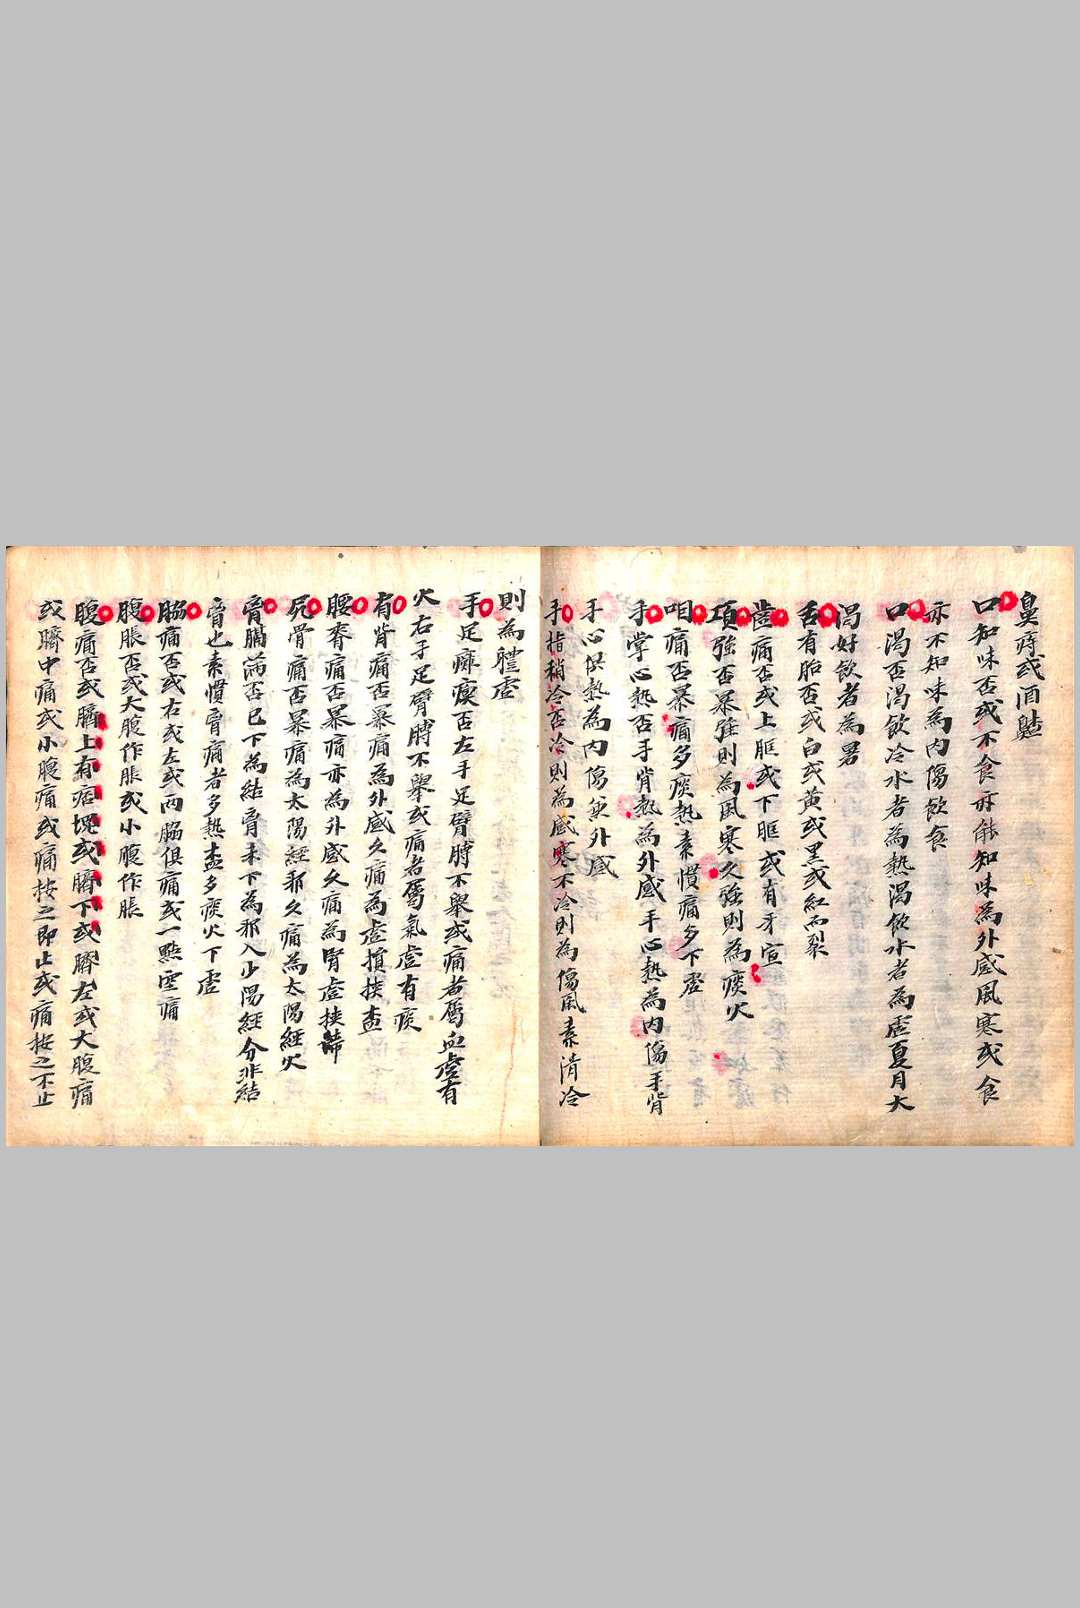 鼻痔或酒齄
口知味否或不食亦能知味為外感風寒或食
亦不知味為內傷飲食
口渴否渴飲冷水者為熱渴飲水者為虛夏月大
渴好飲者為暑
舌有胎否或白或黃或黑或紅而裂
齒痛否或上眶或下眶或有牙宣
項強否暴強則為風寒久強則為痰火
咽痛否暴痛多痰熱素慣痛多下虛
手掌心熱否手背熱為外感手心熱為內傷手背
手心俱熱為內傷兼外感
手指稍冷否冷則為感寒不冷則為傷風素清冷
則為體虛
手足癱瘓否左手足臂膊不舉或痛者屬血虛有
火右手足臂膊不舉或痛者屬氣虛有痰
有背痛否暴痛為外感久痛為虛損挾
腰脊痛否暴痛亦為外感久痛為腎虛挾
尻骨痛否暴痛為太陽經邪久痛為太陽經火
胷膈滿否已下為結胷未下為邪入少陽經分非結
胷也素慣胷痛者多熱盍多痰火下虛
脇痛否或右或左或兩脇俱痛或一點空痛
腹脹否或大腹作脹或小腹作脹
腹痛否或臍上有痞塊或臍下或臍左或大腹痛
或臍中痛或小腹痛或痛按之即止或痛按之不止